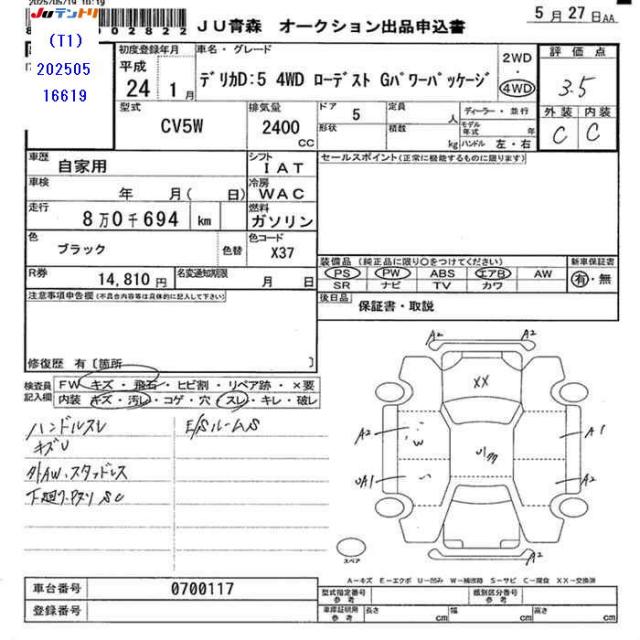 2025/05/19 16:19
JUテントリ
8 0002822
(T1)
202505
16619
JU青森 オークション出品申込書
5月27日AA
初度登録年月
平成
24 1月
車名・グレード
デリカD:5 4WD ローデスト Gパワーパッケージ
2WD
4WD
評価点
3.5
外装 内装
C C
型式
CV5W
排気量
2400
CC
ドア
5
形状
定員
人
積数
kg
ディーラー・並行
モデル年式
年
ハンドル 左・右
車歴
自家用
シフト
IAT
車検
年 月( 日)
冷房
WAC
走行
8万0千694 km
燃料
ガソリン
色
ブラック
色替
色コード
X37
R券
14,810円
名変通知期限
月 日
セールスポイント(正常に機能するものに限ります)
装備品(純正品に限り○をつけてください)
PS PW ABS エアB AW
SR ナビ TV カワ
新車保証書
有・無
後日品
保証書・取説
注意事項申告欄(不具合内容等は具体的に記入して下さい)
修復歴 有〔箇所 〕
検査員記入欄
FW キズ・飛石・ヒビ割・リペア跡・×要
内装 キズ・汚レ・コゲ・穴・スレ・キレ・破レ
ハンドルスレ
キズU
E/Sルーム S
外AW.スタッドレス
下廻り.Pスリ SC
A2 A2
XX
A2
W
A1
A2
スペア
A-キズ E-エクボ U-凹み W-補修跡 S-サビ C-腐食 XX-交換済
車台番号
0700117
登録番号
型式指定番号
参考
類別区分番号
参考
車庫証明用
参考
長さ cm
幅 cm
高さ cm